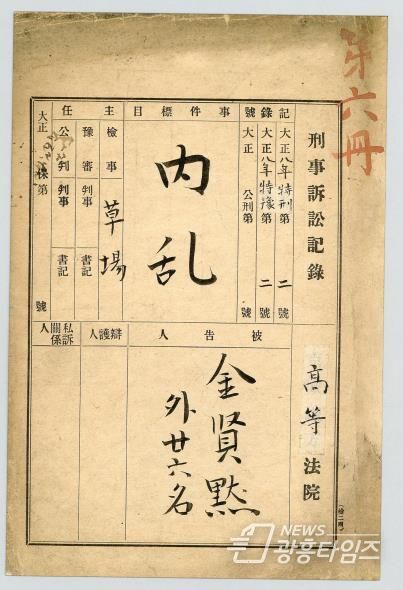 第六冊
刑事訴訟記錄
高等法院
記錄號
大正八年特刑第二號
大正八年特豫第二號
大正 公刑第 號
事件標目
內乱
主任
檢事 草場
豫審判事 書記
公判判事 書記
大正 保第 號
被告人
金賢黙
外廿六名
辯護人
私訴關係人
NEWS
광흥타임즈